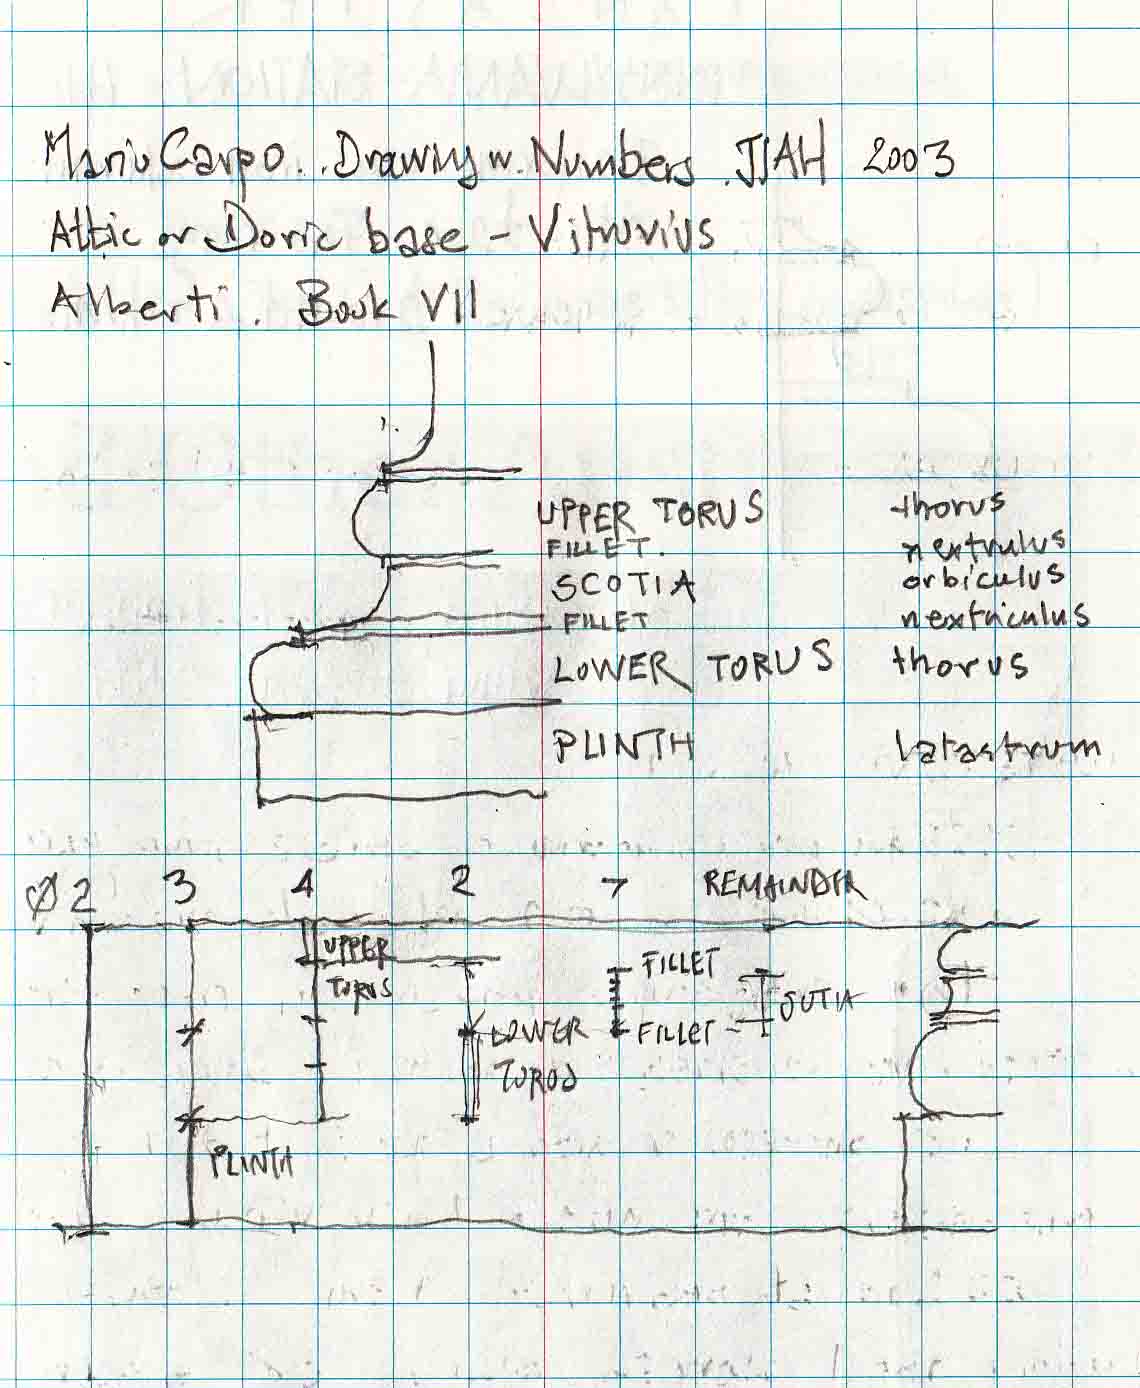 Mario Carpo. Drawing w. Numbers. JSAH 2003
Attic or Doric base - Vitruvius
Alberti. Book VII
UPPER TORUS thorus
FILLET. nextrulus
SCOTIA orbiculus
FILLET nextriculus
LOWER TORUS thorus
PLINTH latastrum
Ø2 3 4 2 7 REMAINDER
UPPER
TORUS
FILLET
SOTIA
LOWER FILLET
TORUS
PLINTH